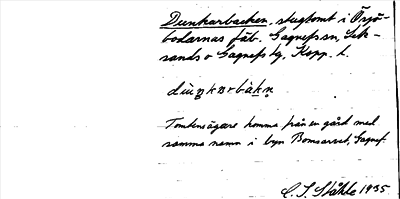 Dunkarbacken, slugtomt i Örsjö-
bodarnas fäb. Gagnefs sn, Lek-
sands o Gagnefs tg, Kopp. l.
Tomtens ägare komma från en gård med
samma namn i byn Bomsarvet, Gagnef.
C. I. Ståhle 1935